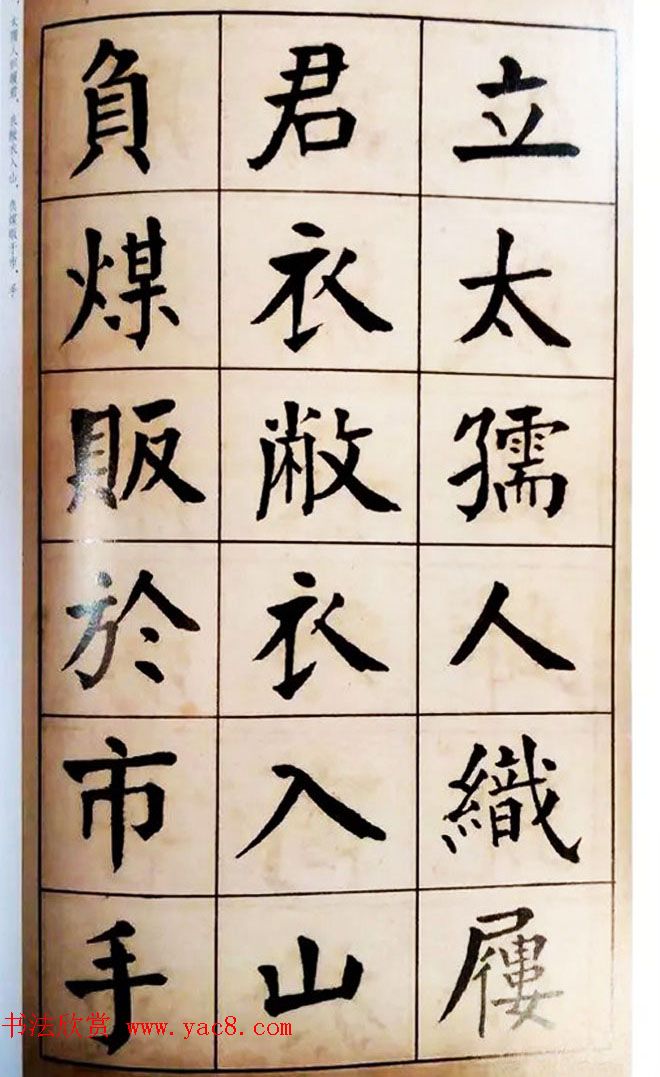 立太孺人織屨
君衣敝衣入山
負煤販於市手
太孺人织屦君,衣敝衣入山,负煤贩于市,手
书法欣赏 www.yac8.com